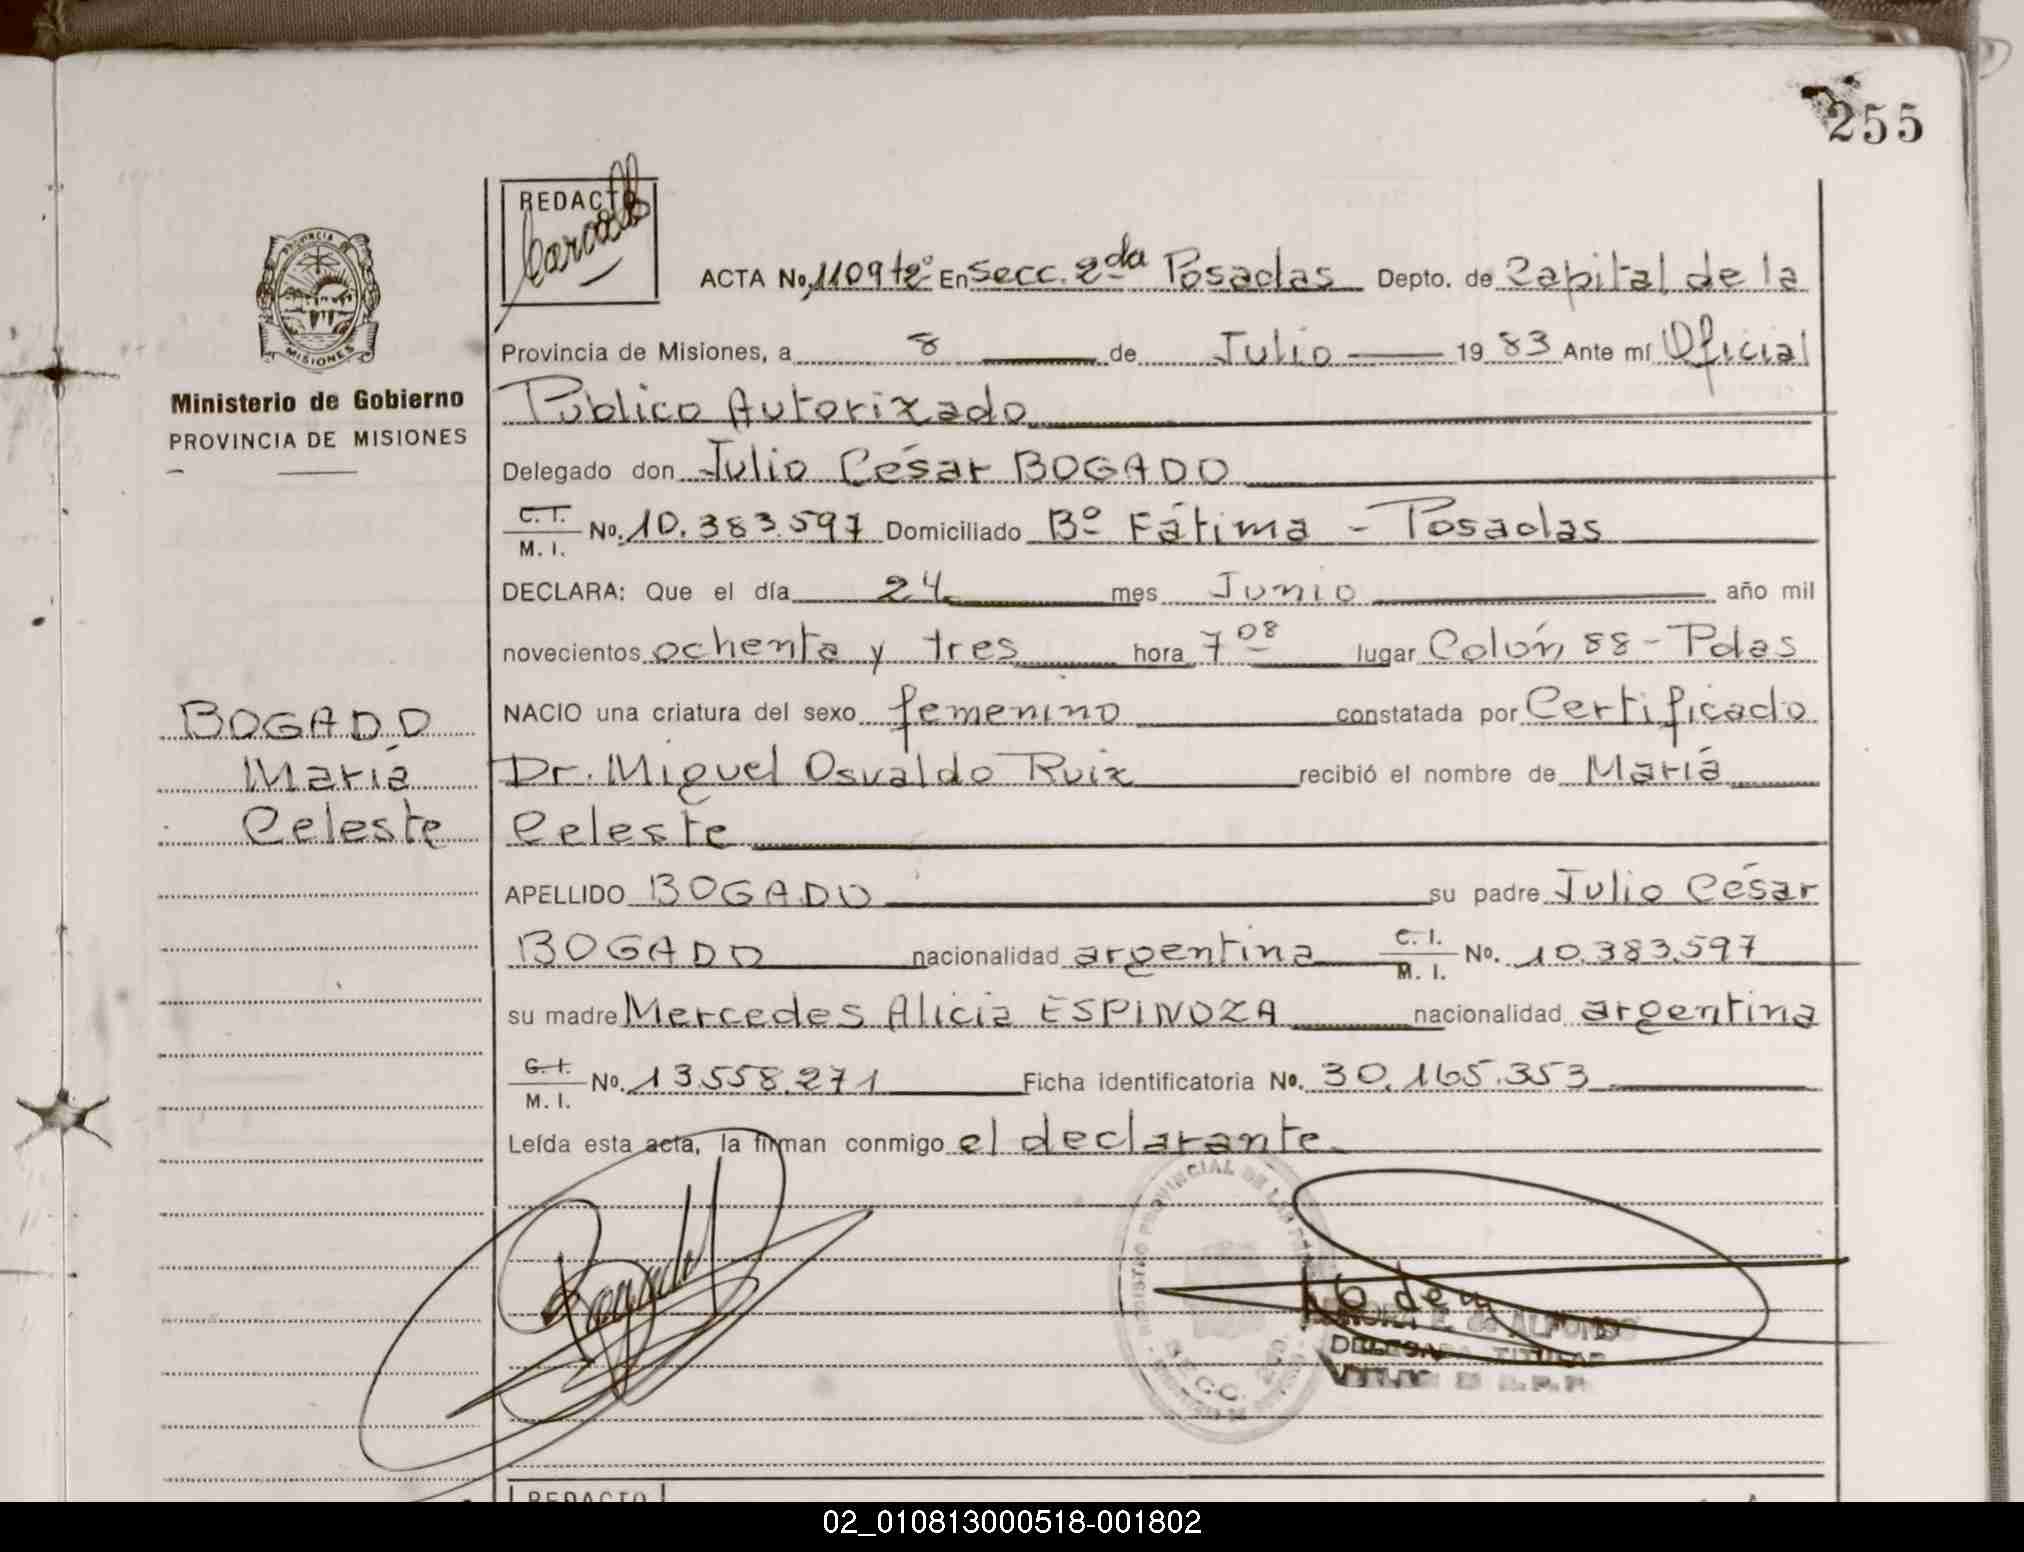 255
REDACTO
ACTA No. 1109 tº 2º En Secc. 2da Posadas Depto. de Capital de la
PROVINCIA DE
MISIONES
Provincia de Misiones, a 8 de Julio 1983 Ante mí Oficial
Ministerio de Gobierno
PROVINCIA DE MISIONES
Público Autorizado
Delegado don Julio César BOGADO
C. I.
M. I. No. 10.383.597 Domiciliado Bº Fátima - Posadas
DECLARA: Que el día 24 mes Junio año mil
novecientos ochenta y tres hora 7 08 lugar Colón 88 - Pdas
BOGADO
María
Celeste
NACIO una criatura del sexo femenino constatada por Certificado
Dr. Miguel Osvaldo Ruiz recibió el nombre de María
Celeste
APELLIDO BOGADO su padre Julio César
BOGADO nacionalidad argentina C. I.
M. I. No. 10.383.597
su madre Mercedes Alicia ESPINOZA nacionalidad argentina
C. I.
M. I. No. 13.558.271 Ficha identificatoria No. 30.165.353
Leída esta acta, la firman conmigo el declarante
REGISTRO PROVINCIAL DE LAS
SECC. 2DA.
E. de ALFONSO
DELEGADA TITULAR
REDACTO
02_010813000518-001802